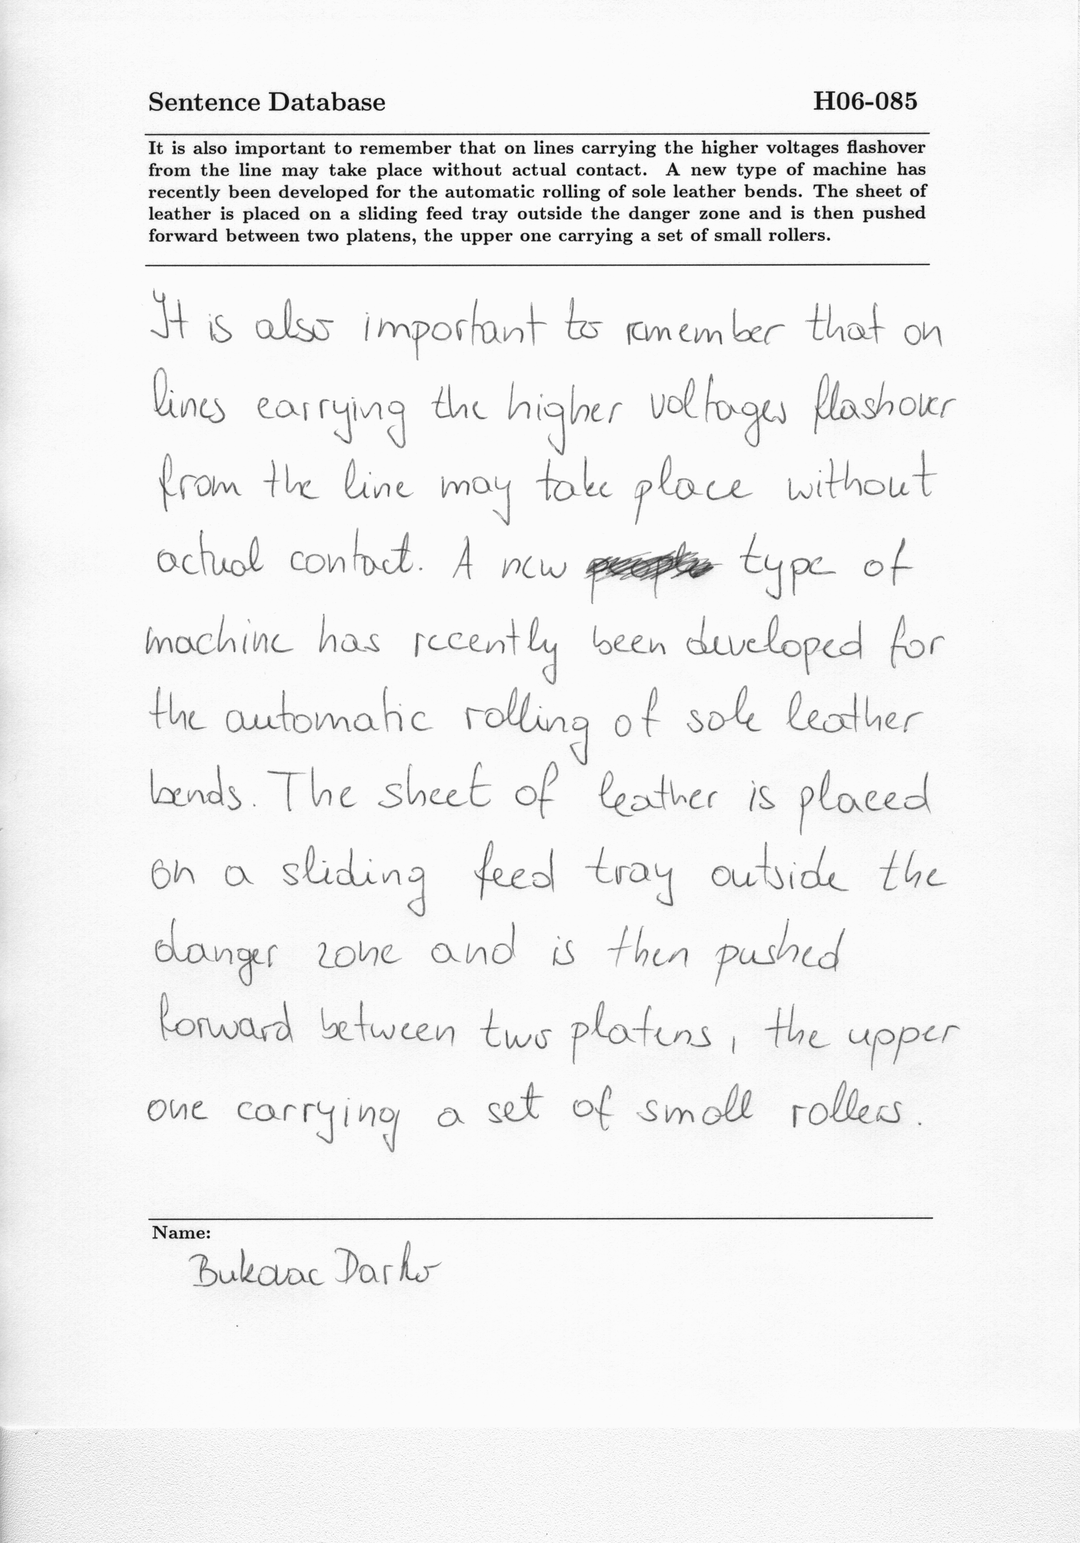 Sentence Database H06-085
It is also important to remember that on lines carrying the higher voltages flashover
from the line may take place without actual contact. A new type of machine has
recently been developed for the automatic rolling of sole leather bends. The sheet of
leather is placed on a sliding feed tray outside the danger zone and is then pushed
forward between two platens, the upper one carrying a set of small rollers.
It is also important to remember that on
lines carrying the higher voltages flashover
from the line may take place without
actual contact. A new type of
machine has recently been developed for
the automatic rolling of sole leather
bends. The sheet of leather is placed
on a sliding feed tray outside the
danger zone and is then pushed
forward between two platens, the upper
one carrying a set of small rollers.
Name:
Bukovac Darko